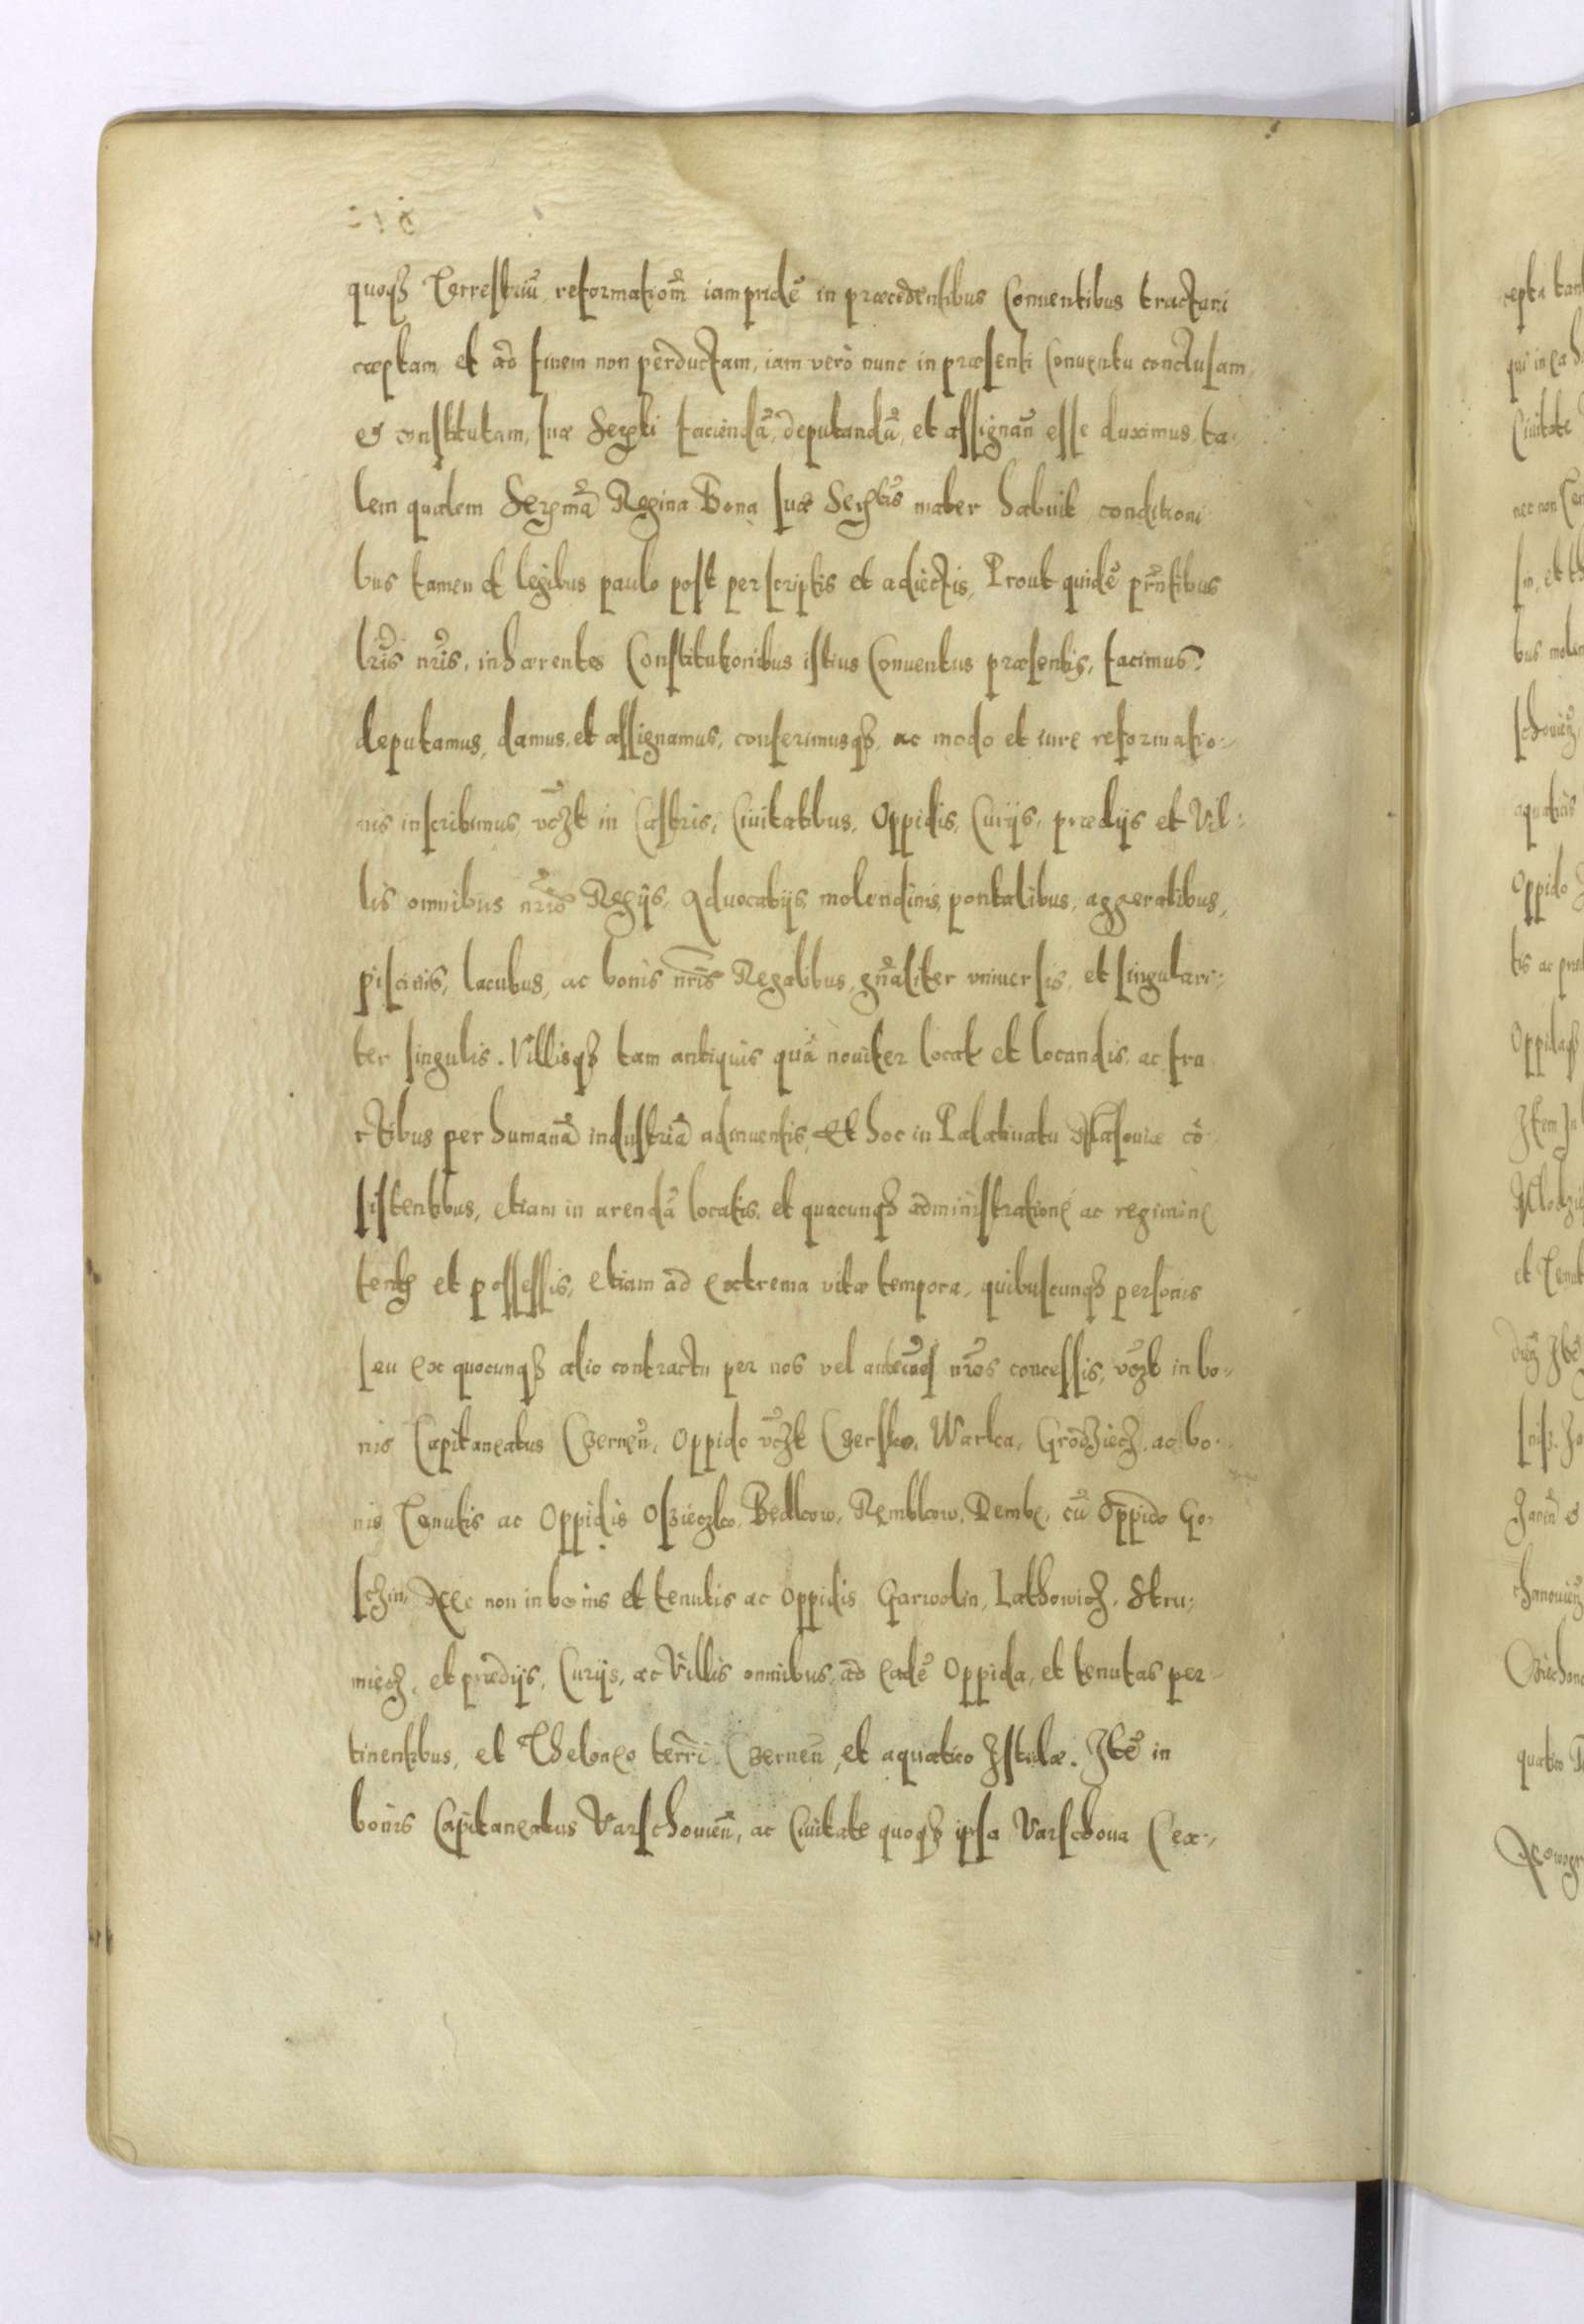 quoqȝ Terrestriũ reformationẽ iampridẽ in præcedentibus Conuentibus tractari
cæptam et ad finem non perductam, iam verò nunc in præsenti Conuentu conclusam
et constitutam, suæ Serᵗⁱ faciendã, deputandã, et assignañ esse duximus, ta-
lem qualem Sermã Regina Bona suæ Serᵗⁱˢ mater habuit, conditioni
bus tamen et legibus paulo post perscriptis et adiectis, Prout quidẽ prñtibus
lris̃ nris̃, inhærentes Constitutionibus istius Conuentus præsentis, facimus,
deputamus, damus, et assignamus, conferimusqȝ, ac modo et iure reformatio-
nis inscribimus, vcȝt in Castris, Ciuitatibus, Oppidis, Curijs, prædijs et Vil-
lis omnibus nris̃ Regijs, Aduocatijs, molendinis, pontalibus, aggeralibus,
piscinis, lacubus, ac bonis nris̃ Regalibus, gñaliter vniuersis, et singulari-
ter singulis. Villisqȝ tam antiquis quã nouiter locat et locandis, ac fru
ctibus per humanã industriã adinuentis, Et hoc in Palatinatu Masouiæ cõ-
sistentibus, etiam in arendã locatis, et quacunqȝ administratione ac regimine
tentȝ et possessis, etiam ad extrema vitæ tempora, quibuscunqȝ personis
seu ex quocunqȝ alio contractu per nos vel antec̃nos nr̃os concessis, vcȝt in bo-
nis Capitaneatus Czerneñ, Oppido vcȝt Czersko, Warka, Grodziecz, ac bo-
nis Tenutis ac Oppidis Osieczko, Bedkow, Remblow, Rembe, cũ Oppido Go-
schin, Nec non in bonis et tenutis ac Oppidis Garwolin, Lathowicz, Stru-
miecz, et prædijs, Curijs, ac Villis omnibus, ad eadẽ Oppida, et tenutas per-
tinentibus, et Theloneo terri Czerneñ, et aquatico Istulæ. Itẽ in
bonis Capitaneatus Varschouieñ, ac Ciuitate quoqȝ ipsa Varschoua (ex-